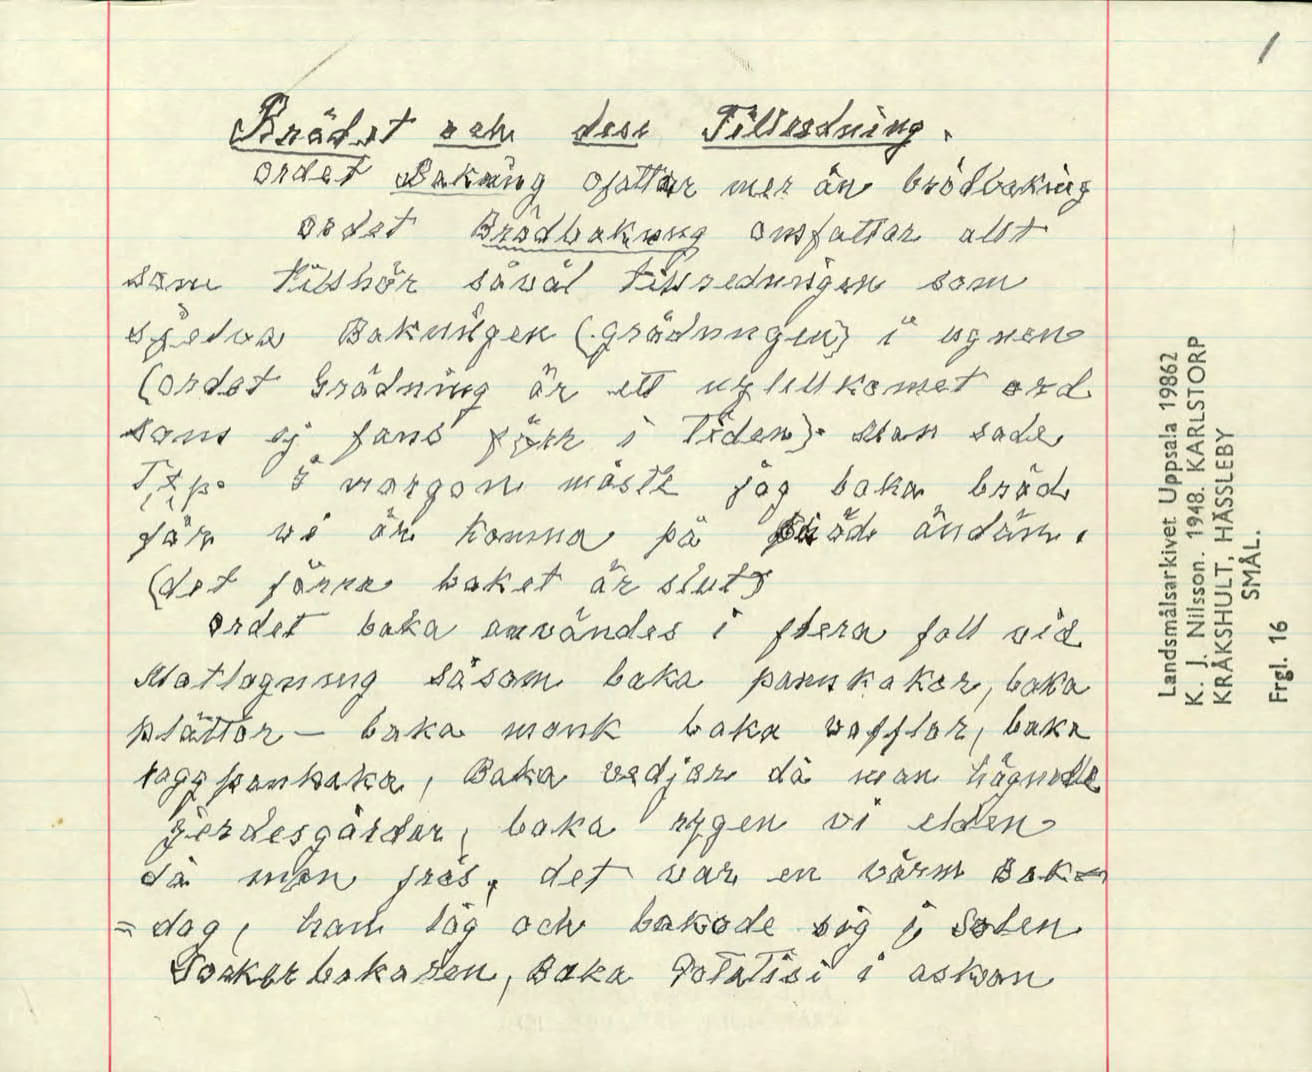 1
Brödet och dess Tillredning.
ordet Bakning ofattar mer än brödbakning
ordet Brödbakning omfattar allt
som tillhör såväl tillredningen som
sjelva Bakningen (grädningen) i ugnen
(ordet Grädning är ett nytillkomet ord
som ej fans förr i tiden). Man sade
T,x,p. I morgon måste jag baka bröd
för vi är komna på bröd ändan.
(det förra baket är slut)
ordet baka användes i flera fall vid
Matlagning såsom baka pannkakor, baka
plättor – baka munk baka vafflor, baka
raggpankaka, Baka vedjor då man hägnade
gjerdesgårdar, baka rygen vi elden
då man frös, det var en värm Bak=
=dag, han låg och bakade sig i Solen
Sockerbakaren, Baka Potatisi i askan
Landsmålsarkivet Uppsala 19862
K. J. Nilsson. 1948. KARLSTORP
KRÅKSHULT, HÄSSLEBY
SMÅL.
Frgl. 16